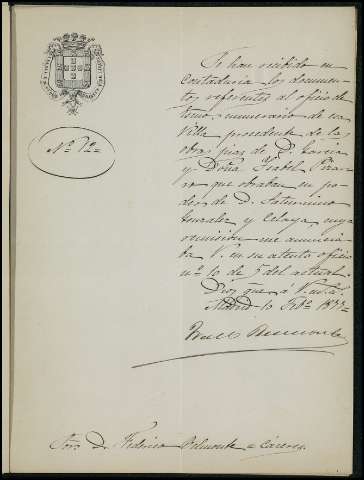 Nº 12=
Se han recibido en
Contaduria los documen-
tos referentes al oficio de
numerario de esa
Villa procedente de las
obras pias de D. Garcia
y Doña Ysabel Pizar-
ro que obraban en po-
der de D. Saturnino
Gonzalez y Celaya, cuya
remision me anuncia-
ba V. en su atento oficio
nº 10 de 5 del actual.
Dios gue. á V. ms. as.
Madrid 10 Febº 1877=
Belmonte
Sor. D. Federico Belmonte = Cáceres.